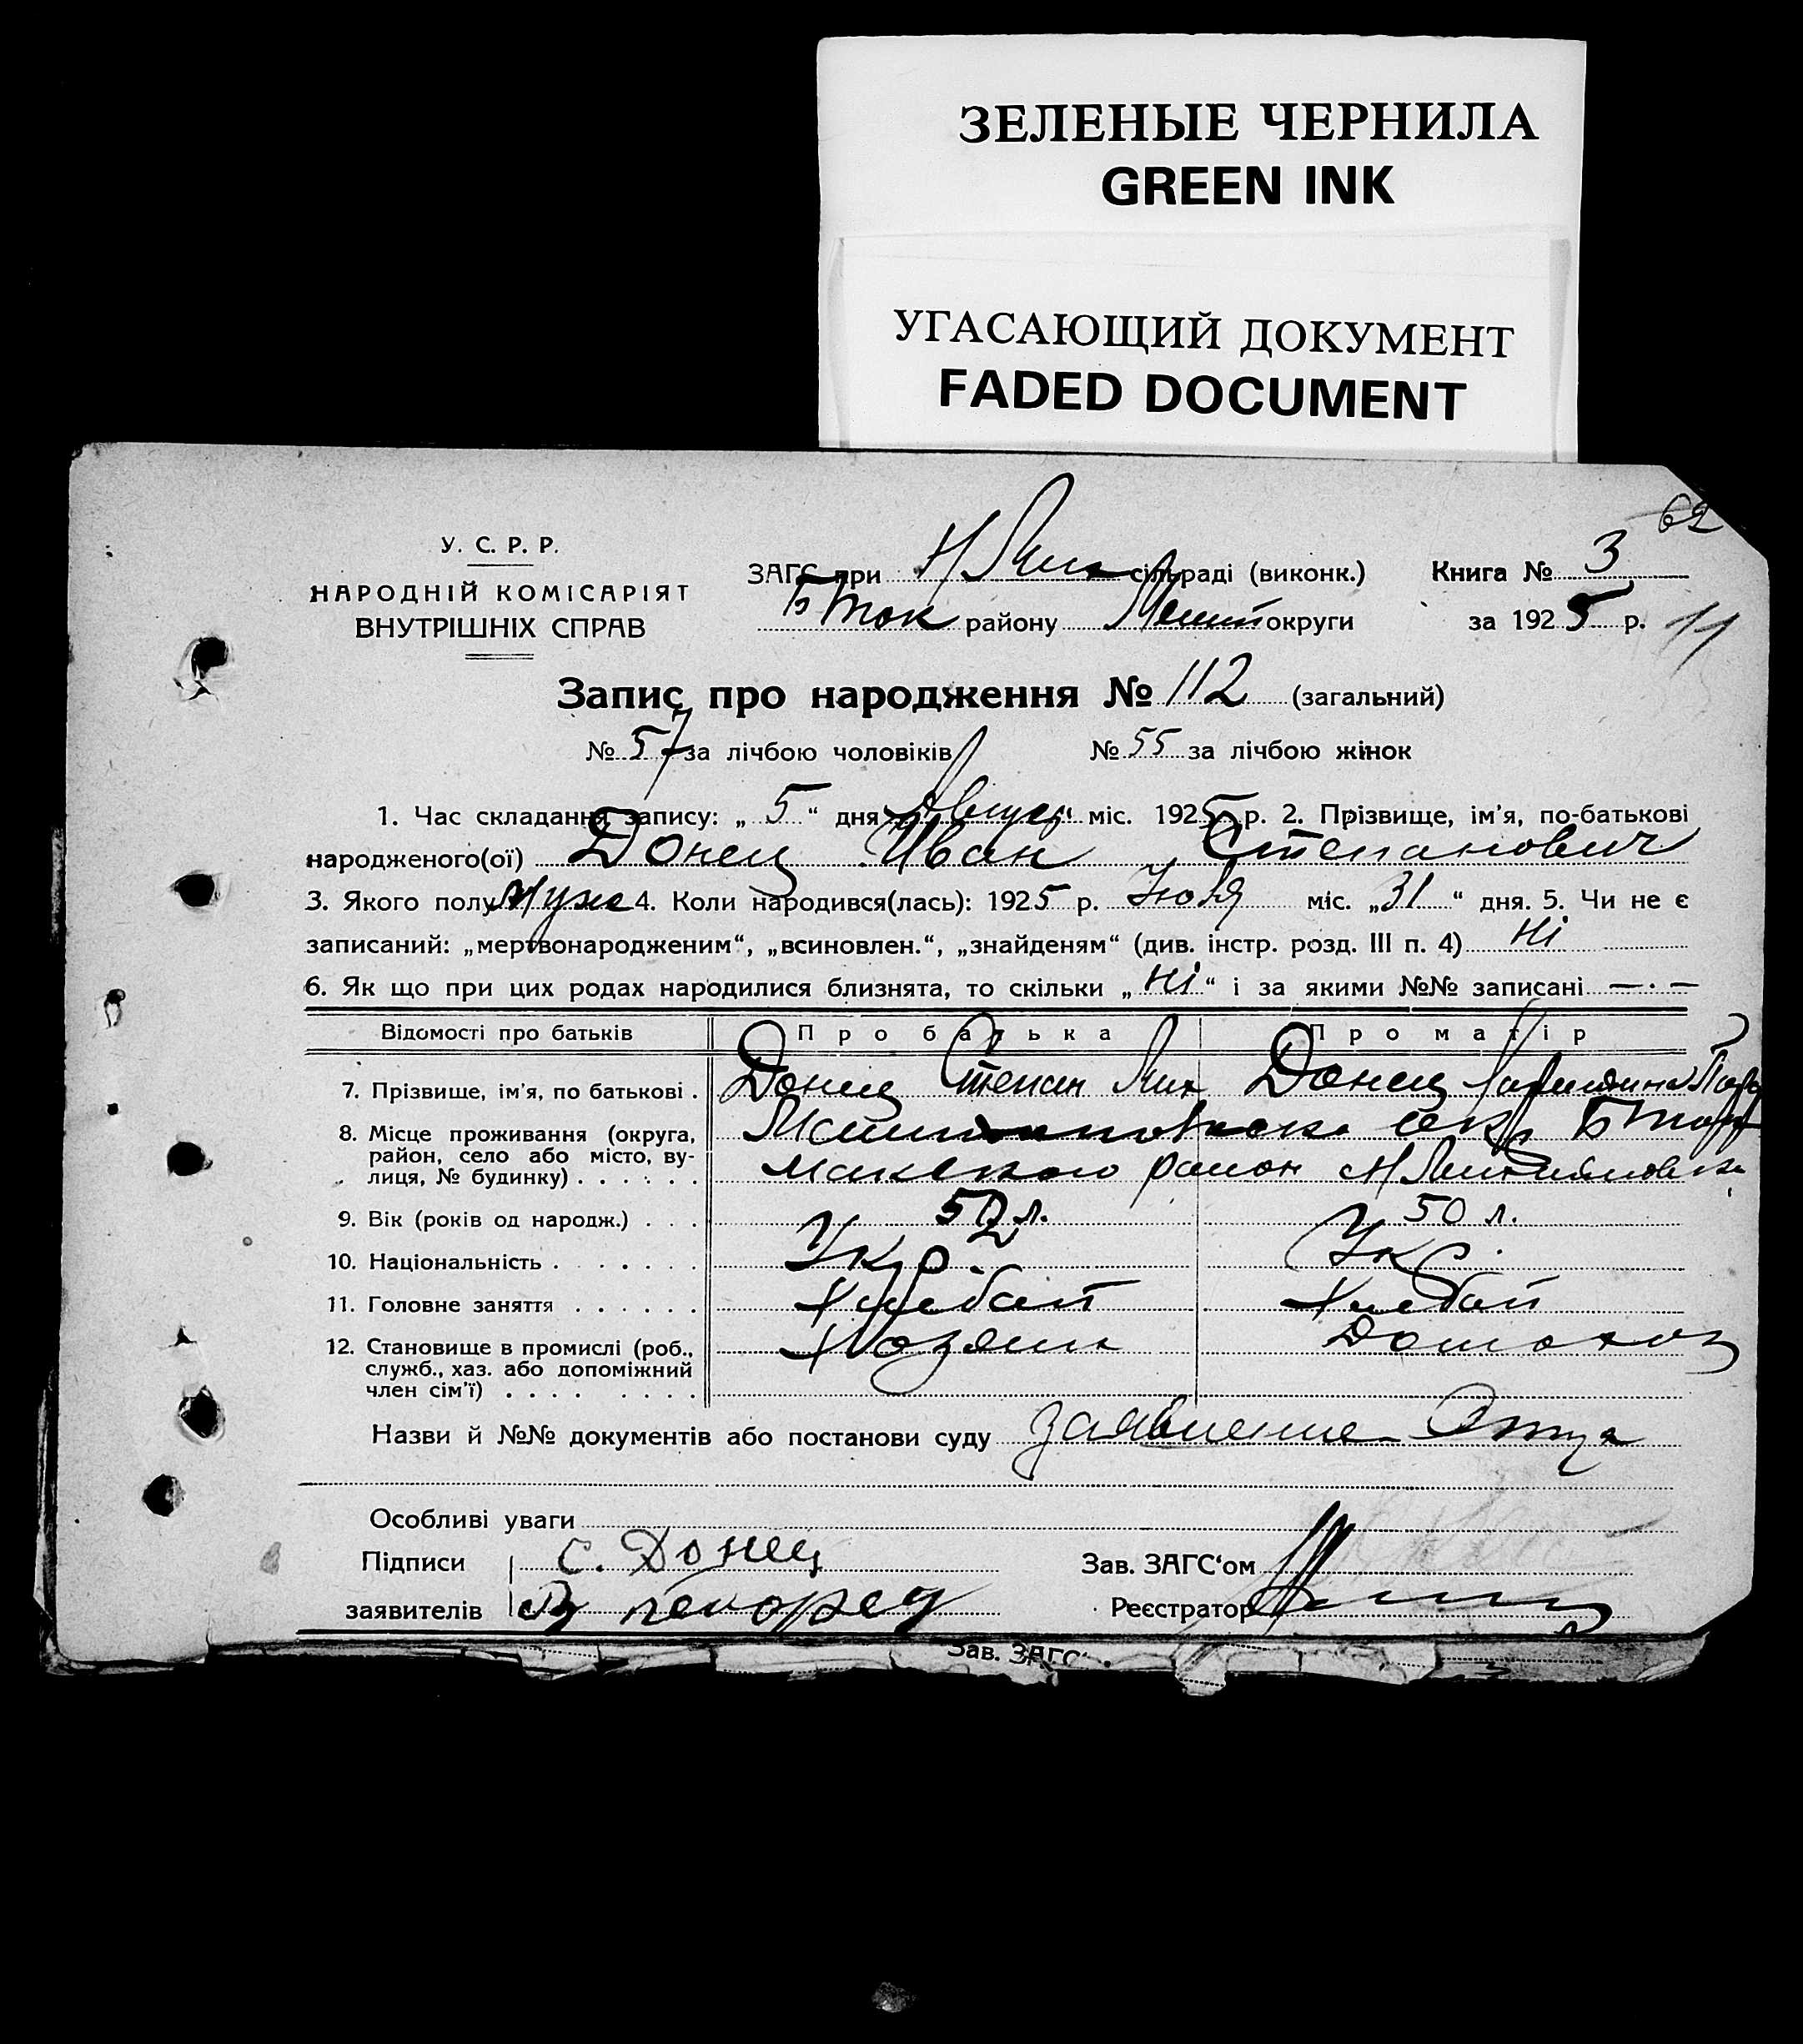 ЗЕЛЕНЫЕ ЧЕРНИЛА
GREEN INK
УГАСАЮЩИЙ ДОКУМЕНТ
FADED DOCUMENT
62
У. С. Р. Р.
НАРОДНІЙ КОМІСАРІЯТ
ВНУТРІШНІХ СПРАВ
ЗАГС при Н сільраді (виконк.) Книга № 3
БТок району округи за 1925 р. 11
Запис про народження № 112 (загальний)
№ 57 за лічбою чоловіків № 55 за лічбою жінок
1. Час складання запису: „ 5 “ дня Август міс. 1925 р. 2. Прізвище, ім'я, по-батькові
народженого(ої) Донец Иван Степанович
3. Якого полу Муж 4. Коли народився(лась): 1925 р. Июля міс. „31“ дня. 5. Чи не є
записаний: „мертвонародженим“, „всиновлен.“, „знайденям“ (див. інстр. розд. III п. 4) Ні
6. Як що при цих родах народилися близнята, то скільки „ Ні “ і за якими №№ записані — . —
Відомості про батьків Про батька Про матір
7. Прізвище, ім'я, по батькові . Донец Степан Донец
8. Місце проживання (округа, окр
район, село або місто, ву- район
лиця, № будинку) . . . . . .
9. Вік (років од народж.) . . . 52 л. 50 л.
10. Національність . . . . . . . Укр. Укр.
11. Головне заняття . . . . . . Хлебоп Хлебоп
12. Становище в промислі (роб., Хозяин
служб., хаз. або допоміжний
член сім'ї) . . . . . . . .
Назви й №№ документів або постанови суду заявление Отца
Особливі уваги
Підписи С. Донец Зав. ЗАГС'ом
заявителів Реєстратор
Зав. ЗАГС'